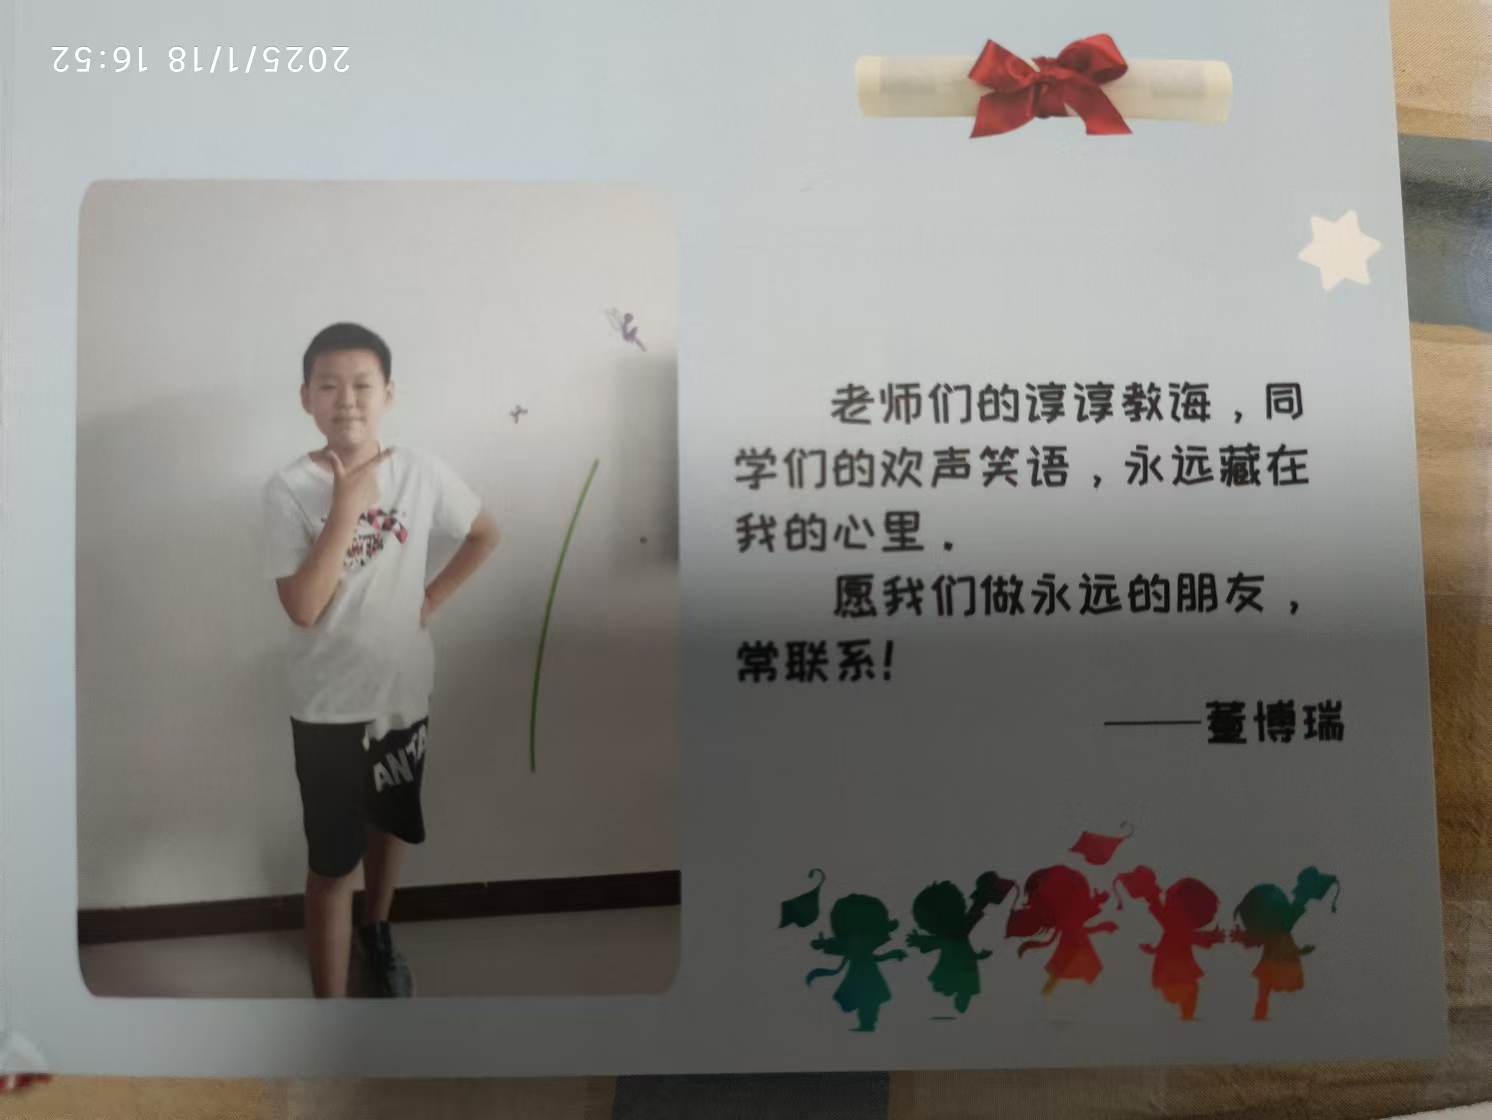 2025/1/18 16:52
老师们的谆谆教诲，同
学们的欢声笑语，永远藏在
我的心里.
愿我们做永远的朋友，
常联系!
——董博瑞
ANTA